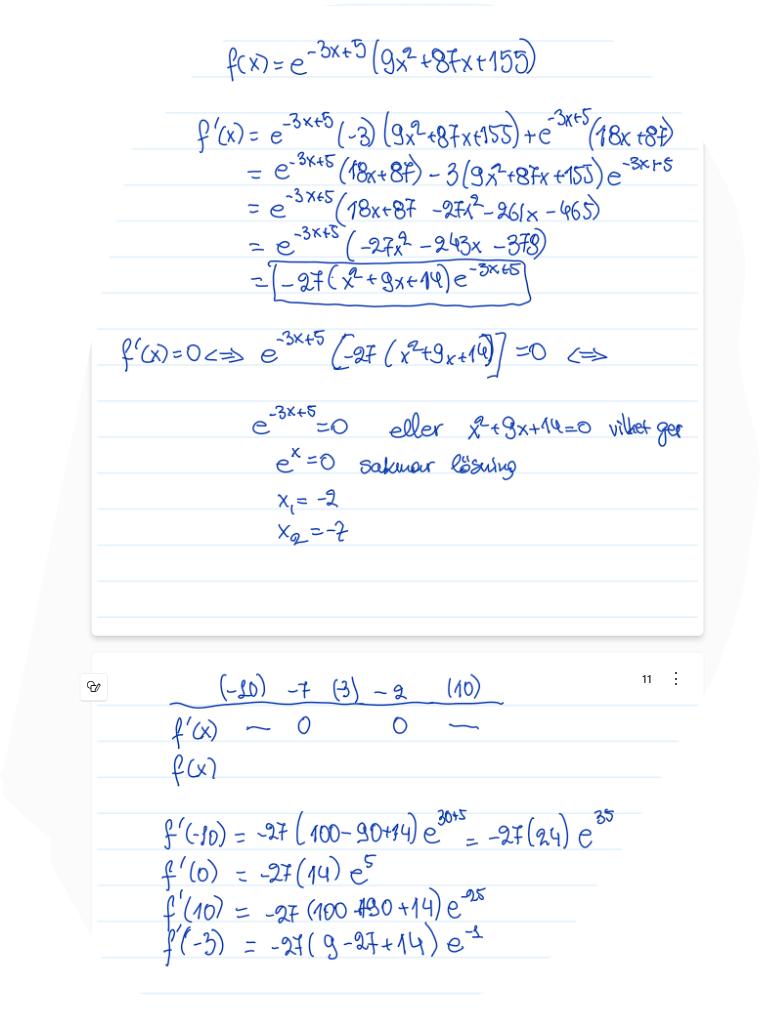 f(x) = e^{-3x+5} (9x²+87x+155)
f'(x) = e^{-3x+5} (-3) (9x²+87x+155) + e^{-3x+5} (18x+87)
= e^{-3x+5} (18x+87) - 3(9x²+87x+155) e^{-3x+5}
= e^{-3x+5} (18x+87 -27x² -261x -465)
= e^{-3x+5} (-27x² -243x -378)
= -27(x²+9x+14) e^{-3x+5}
f'(x)=0 <=> e^{-3x+5} [-27 (x²+9x+14)] =0 <=>
e^{-3x+5} =0 eller x²+9x+14=0 vilket ger
e^x =0 saknar lösning
x₁ = -2
x₂ = -7
11
(-10) -7 (3) -2 (10)
f'(x) — 0 0 —
f(x)
f'(-10) = -27 (100-90+14) e^{30+5} = -27(24) e^{35}
f'(0) = -27(14) e^5
f'(10) = -27 (100+90+14) e^{-25}
f'(-3) = -27( 9-27+14) e^{-1}